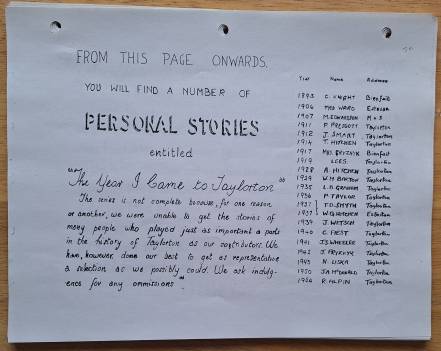 FROM THIS PAGE ONWARDS.
YOU WILL FIND A NUMBER OF
PERSONAL STORIES
entitled
"The Year I Came to Taylorton"
The series is not complete because, for one reason
or another, we were unable to get the stories of
many people who played just as important a part
in the history of Taylorton as our contributors. We
have, however done our best to get as representative
a selection as we possibly could. We ask indulg-
ence for any ommissions"
Year Name Address
1893 C. KNIGHT Bienfait
1906 THO WARD Estevan
1907 M. EDWARDSON M & S
1911 F. PRESCOTT Taylorton
1912 J. SMART Taylorton
1914 T. HITCHEN Taylorton
1917 MRS. Bienfait
1919 LEES Taylorton
1928 A. HITCHEN Taylorton
1929 W.H BARTON Taylorton
1935 L.D. GRAHAM Taylorton
1936 P TAYLOR Taylorton
1937 T.D. SMYTH Taylorton
1937 W.G. HITCHEN Estevan
1939 J. Taylorton
1940 C. Taylorton
1941 J.S WHEELER Taylorton
1942 J. Taylorton
1945 N. LISKA Taylorton
1950 J.A McDONALD Taylorton
1954 R. Taylorton